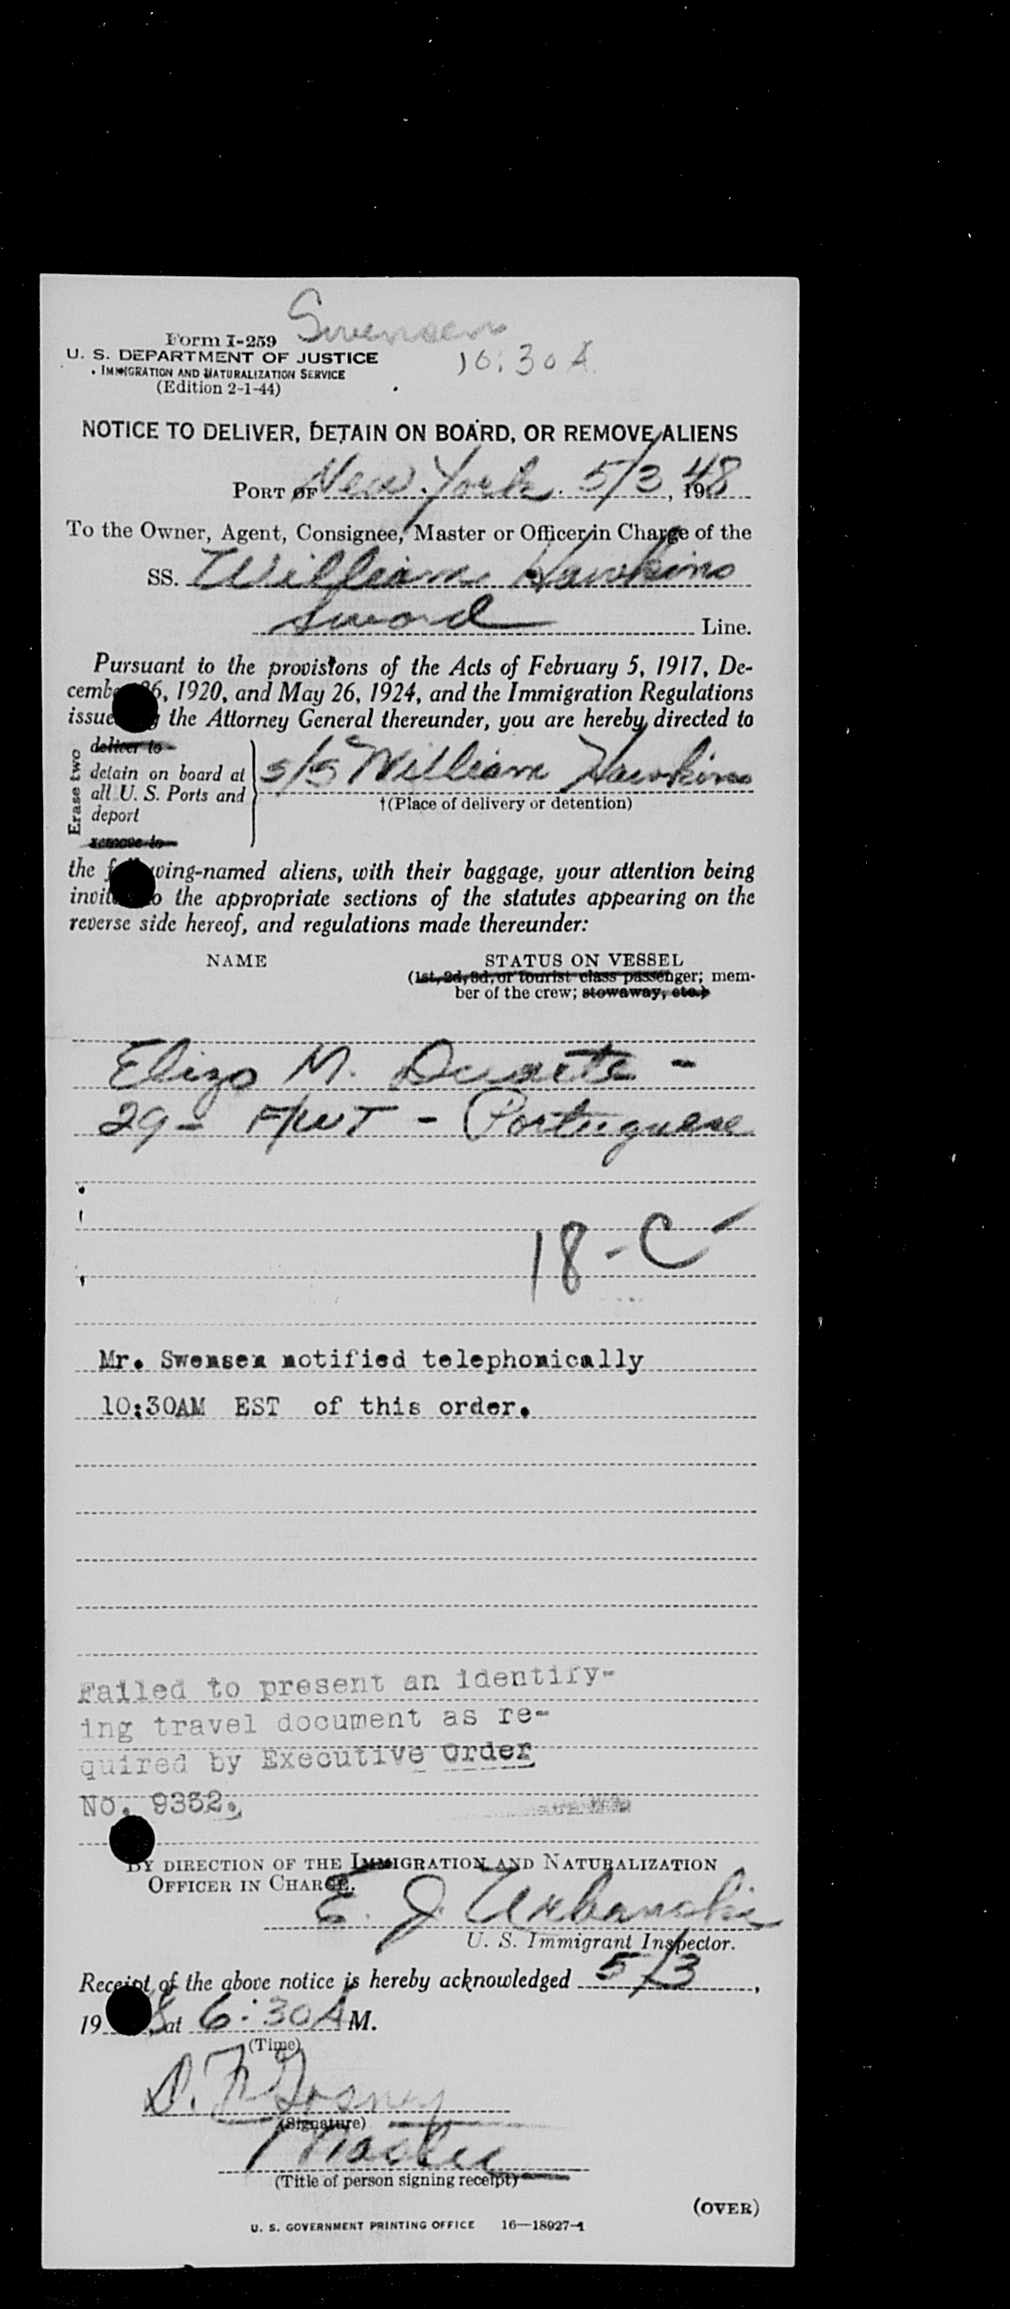 Swensen
Form I-259
10:30 A
U. S. DEPARTMENT OF JUSTICE
IMMIGRATION AND NATURALIZATION SERVICE
(Edition 2-1-44)
NOTICE TO DELIVER, DETAIN ON BOARD, OR REMOVE ALIENS
PORT OF New York 5/3, 1948
To the Owner, Agent, Consignee, Master or Officer in Charge of the
SS. William Hawkins
Sword Line.
Pursuant to the provisions of the Acts of February 5, 1917, De-
cembe 26, 1920, and May 26, 1924, and the Immigration Regulations
issue the Attorney General thereunder, you are hereby directed to
Erase two
deliver to
detain on board at
all U. S. Ports and
deport
remove to
s/s William Hawkins
†(Place of delivery or detention)
the f wing-named aliens, with their baggage, your attention being
invit o the appropriate sections of the statutes appearing on the
reverse side hereof, and regulations made thereunder:
NAME STATUS ON VESSEL
(1st, 2d, 3d, or tourist class passenger; mem-
ber of the crew; stowaway, etc.)
Elizo M. Duarte -
29 - F/WT - Portuguese
18-C
Mr. Swensen notified telephonically
10:30AM EST of this order.
Failed to present an identify-
ing travel document as re-
quired by Executive Order
No. 9352.
BY DIRECTION OF THE IMMIGRATION AND NATURALIZATION
OFFICER IN CHARGE.
E. J. Urbanski
U. S. Immigrant Inspector.
Receipt of the above notice is hereby acknowledged 5/3,
19 8 at 6:30 A M.
(Time)
(Signature)
Master
(Title of person signing receipt)
(OVER)
U. S. GOVERNMENT PRINTING OFFICE 16—18927-1